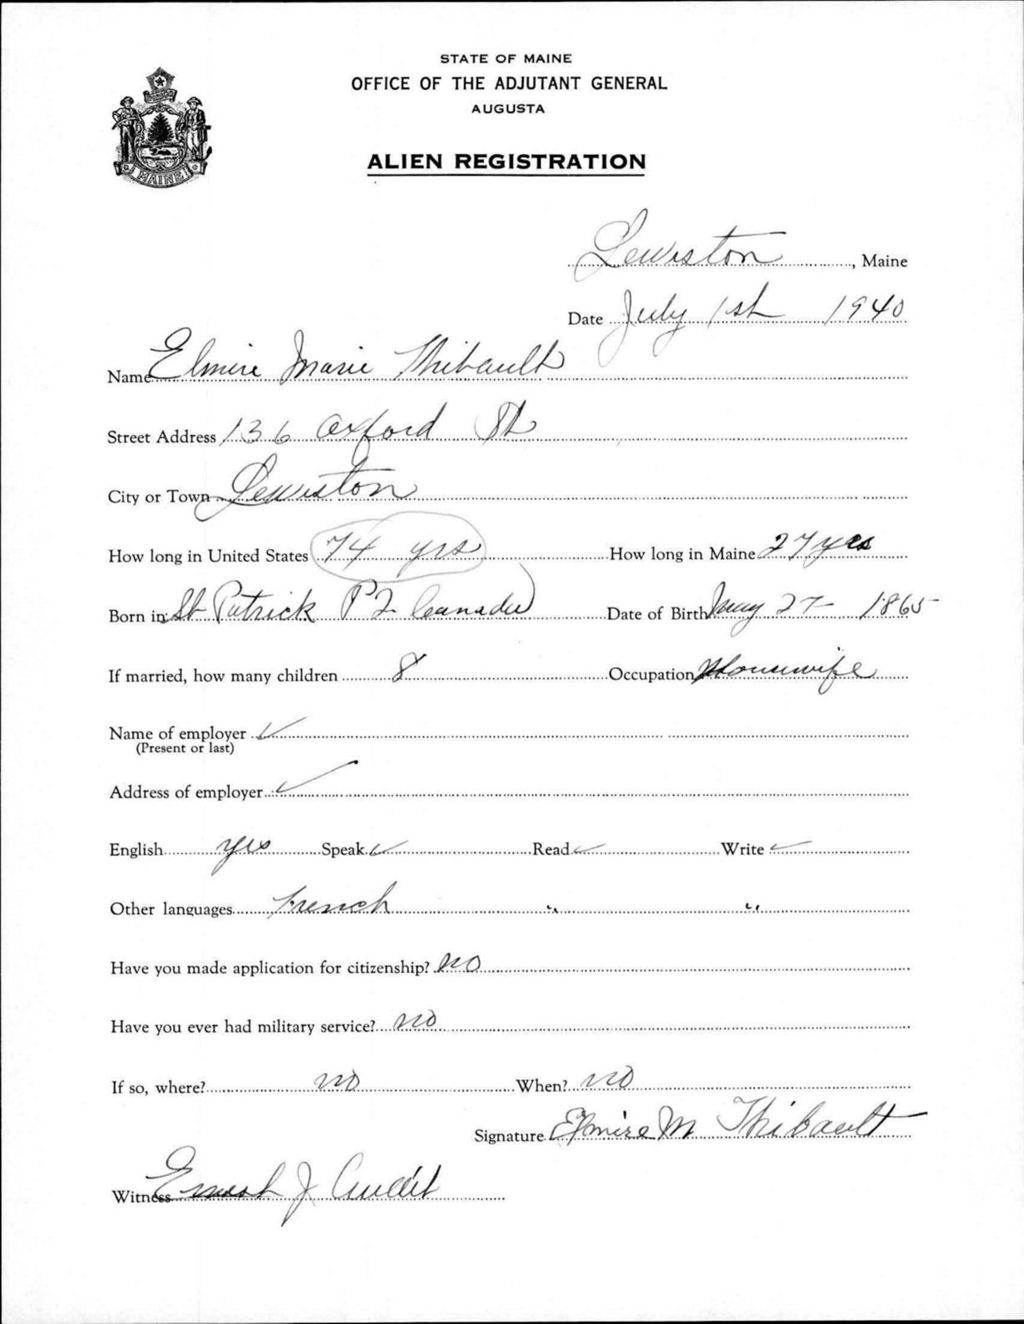 STATE OF MAINE
OFFICE OF THE ADJUTANT GENERAL
AUGUSTA
ALIEN REGISTRATION
MAINE
Lewiston, Maine
Date July 1st 1940
Name Elmire Marie Thibault
Street Address 136 Oxford St
City or Town Lewiston
How long in United States 74 yrs How long in Maine 27 yrs
Born in St Patrick P2 Canada Date of Birth May 27 1865
If married, how many children 8 Occupation Housewife
Name of employer ✓
(Present or last)
Address of employer ✓
English yes Speak ✓ Read ✓ Write ✓
Other languages French " "
Have you made application for citizenship? no
Have you ever had military service? no
If so, where? no When? no
Signature Elmire M Thibault
Witness Ernest J